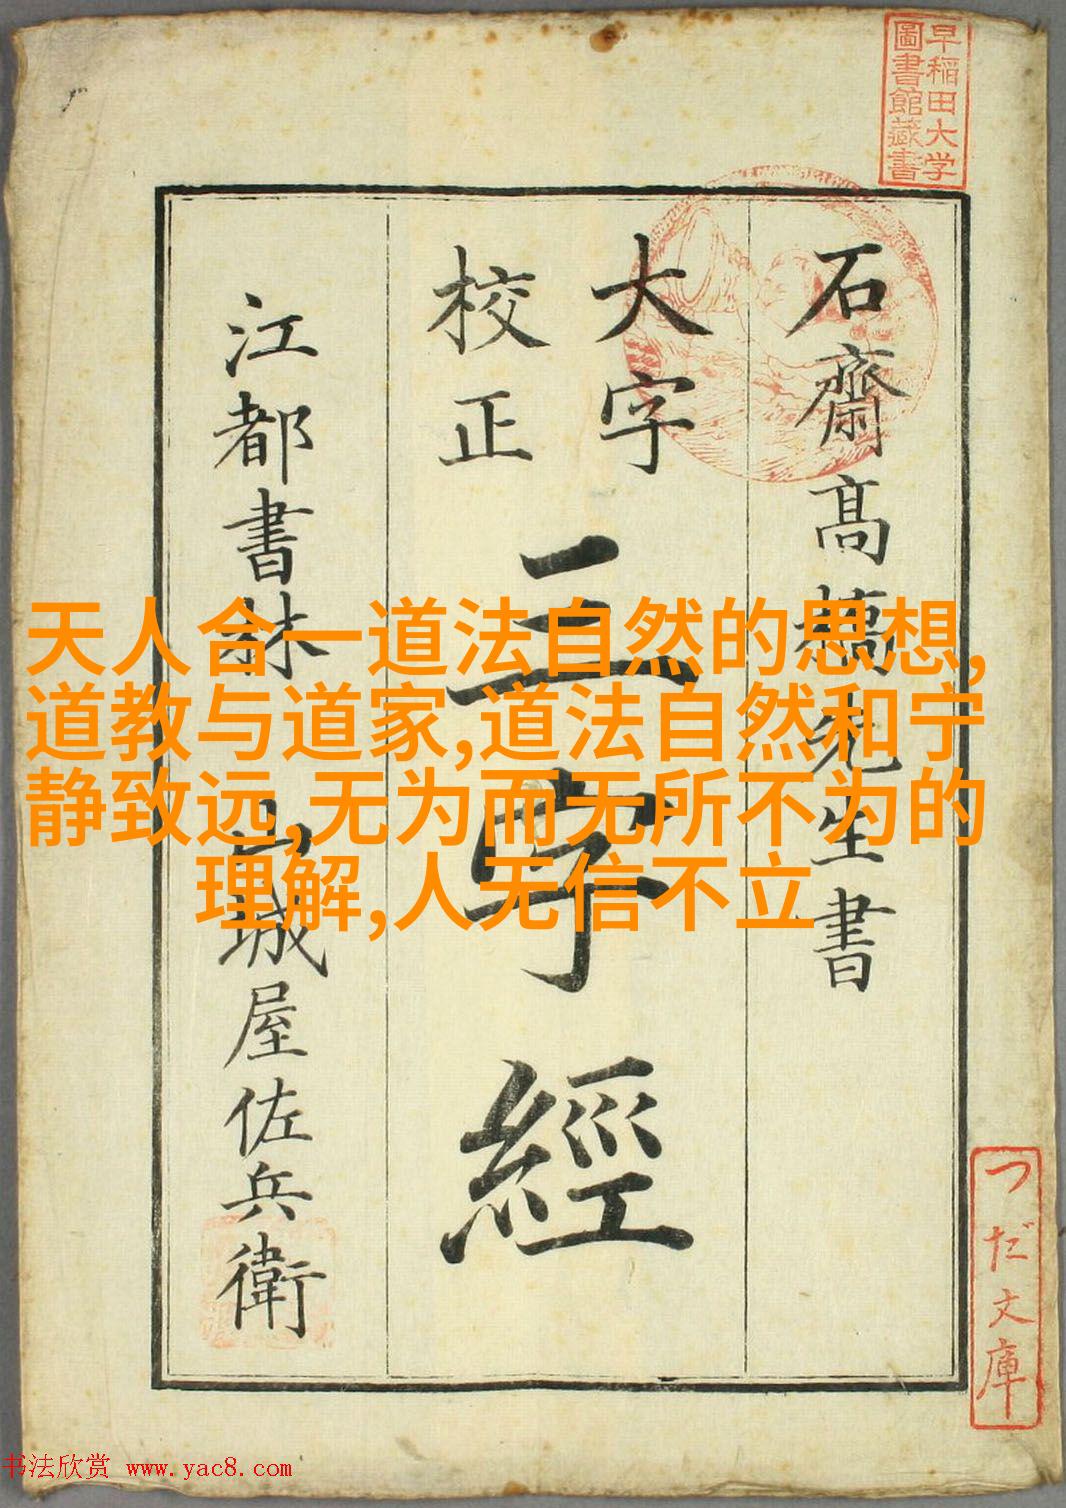 早稲田大学
圖書館蔵書
石齋髙橋先生書
大字
校正
三字經
江都書林 山城屋佐兵衛
天人合一道法自然的思想,
道教与道家,道法自然和宁
静致远,无为而无所不为的
理解,人无信不立
つだ文庫
书法欣赏 www.yac8.com